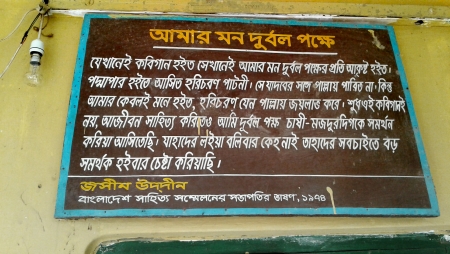 আমার মন দুর্বল পক্ষে
যেখানেই কবিগান হইত সেখানেই আমার মন দুর্বল পক্ষের প্রতি আকৃষ্ট হইত।
পদ্মাপার হইতে আসিত হরিচরণ পাটনী। সে যাদাবর সঙ্গে পাল্লায় পারিত না। কিন্তু
আমার কেবলই মনে হইত, হরিচরণ যেন পাল্লায় জয়লাভ করে। শুধু এই কবিগানই
নয়, আজীবন সাহিত্য করিতেও আমি দুর্বল পক্ষ চাষী-মজদুরদিগকে সমর্থন
করিয়া আসিতেছি। যাহাদের লইয়া বলিবার কেহ নাই তাহাদের সবচাইতে বড়
সমর্থক হইবার চেষ্টা করিয়াছি।
জসীম উদ্‌দীন
বাংলাদেশ সাহিত্য সম্মেলনের সভাপতির ভাষণ, ১৯৭৪